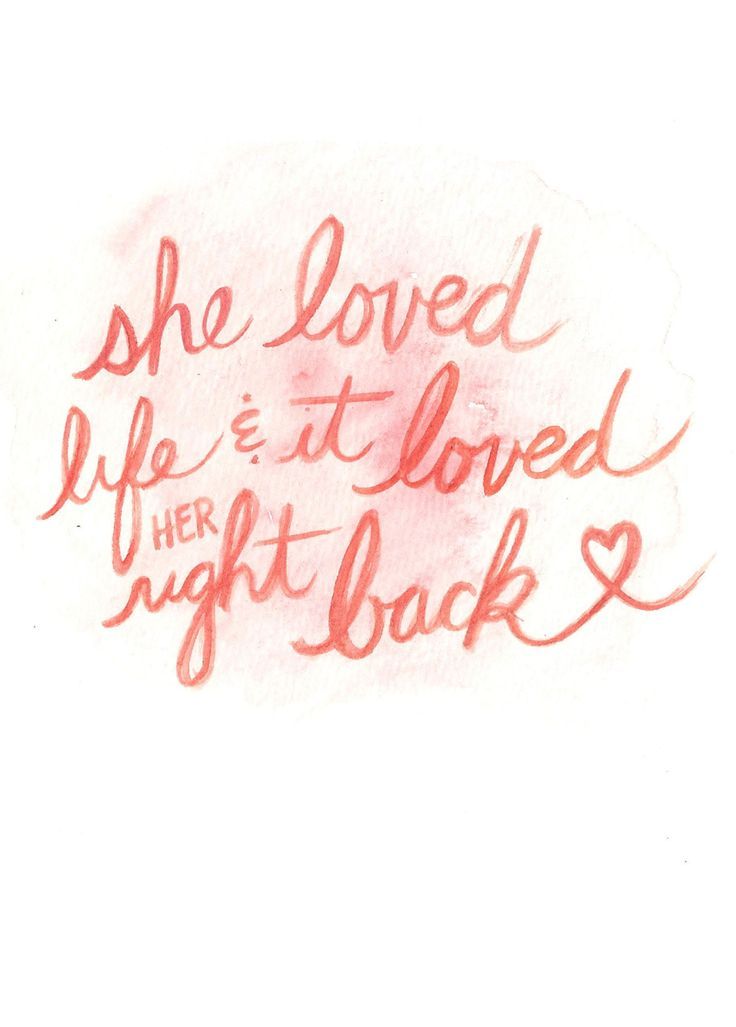 she loved
life & it loved
HER
right back